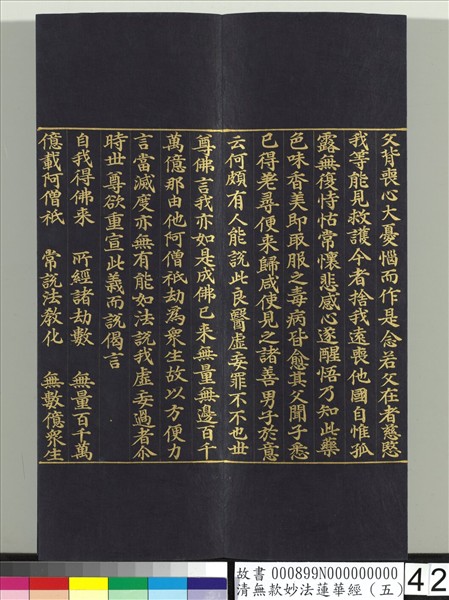 父背喪心大憂惱而作是念若父在者慈愍
我等能見救護今者捨我遠喪他國自惟孤
露無復恃怙常懷悲感心遂醒悟乃知此藥
色味香美即取服之毒病皆愈其父聞子悉
已得差尋便來歸咸使見之諸善男子於意
云何頗有人能說此良醫虛妄罪不不也世
尊佛言我亦如是成佛已來無量無邊百千
萬億那由他阿僧祇劫為眾生故以方便力
言當滅度亦無有能如法說我虛妄過者尒
時世尊欲重宣此義而說偈言
自我得佛來 所經諸劫數 無量百千萬
億載阿僧祇 常說法教化 無數億眾生
故書 000899N000000000
清無款妙法蓮華經（五）
42